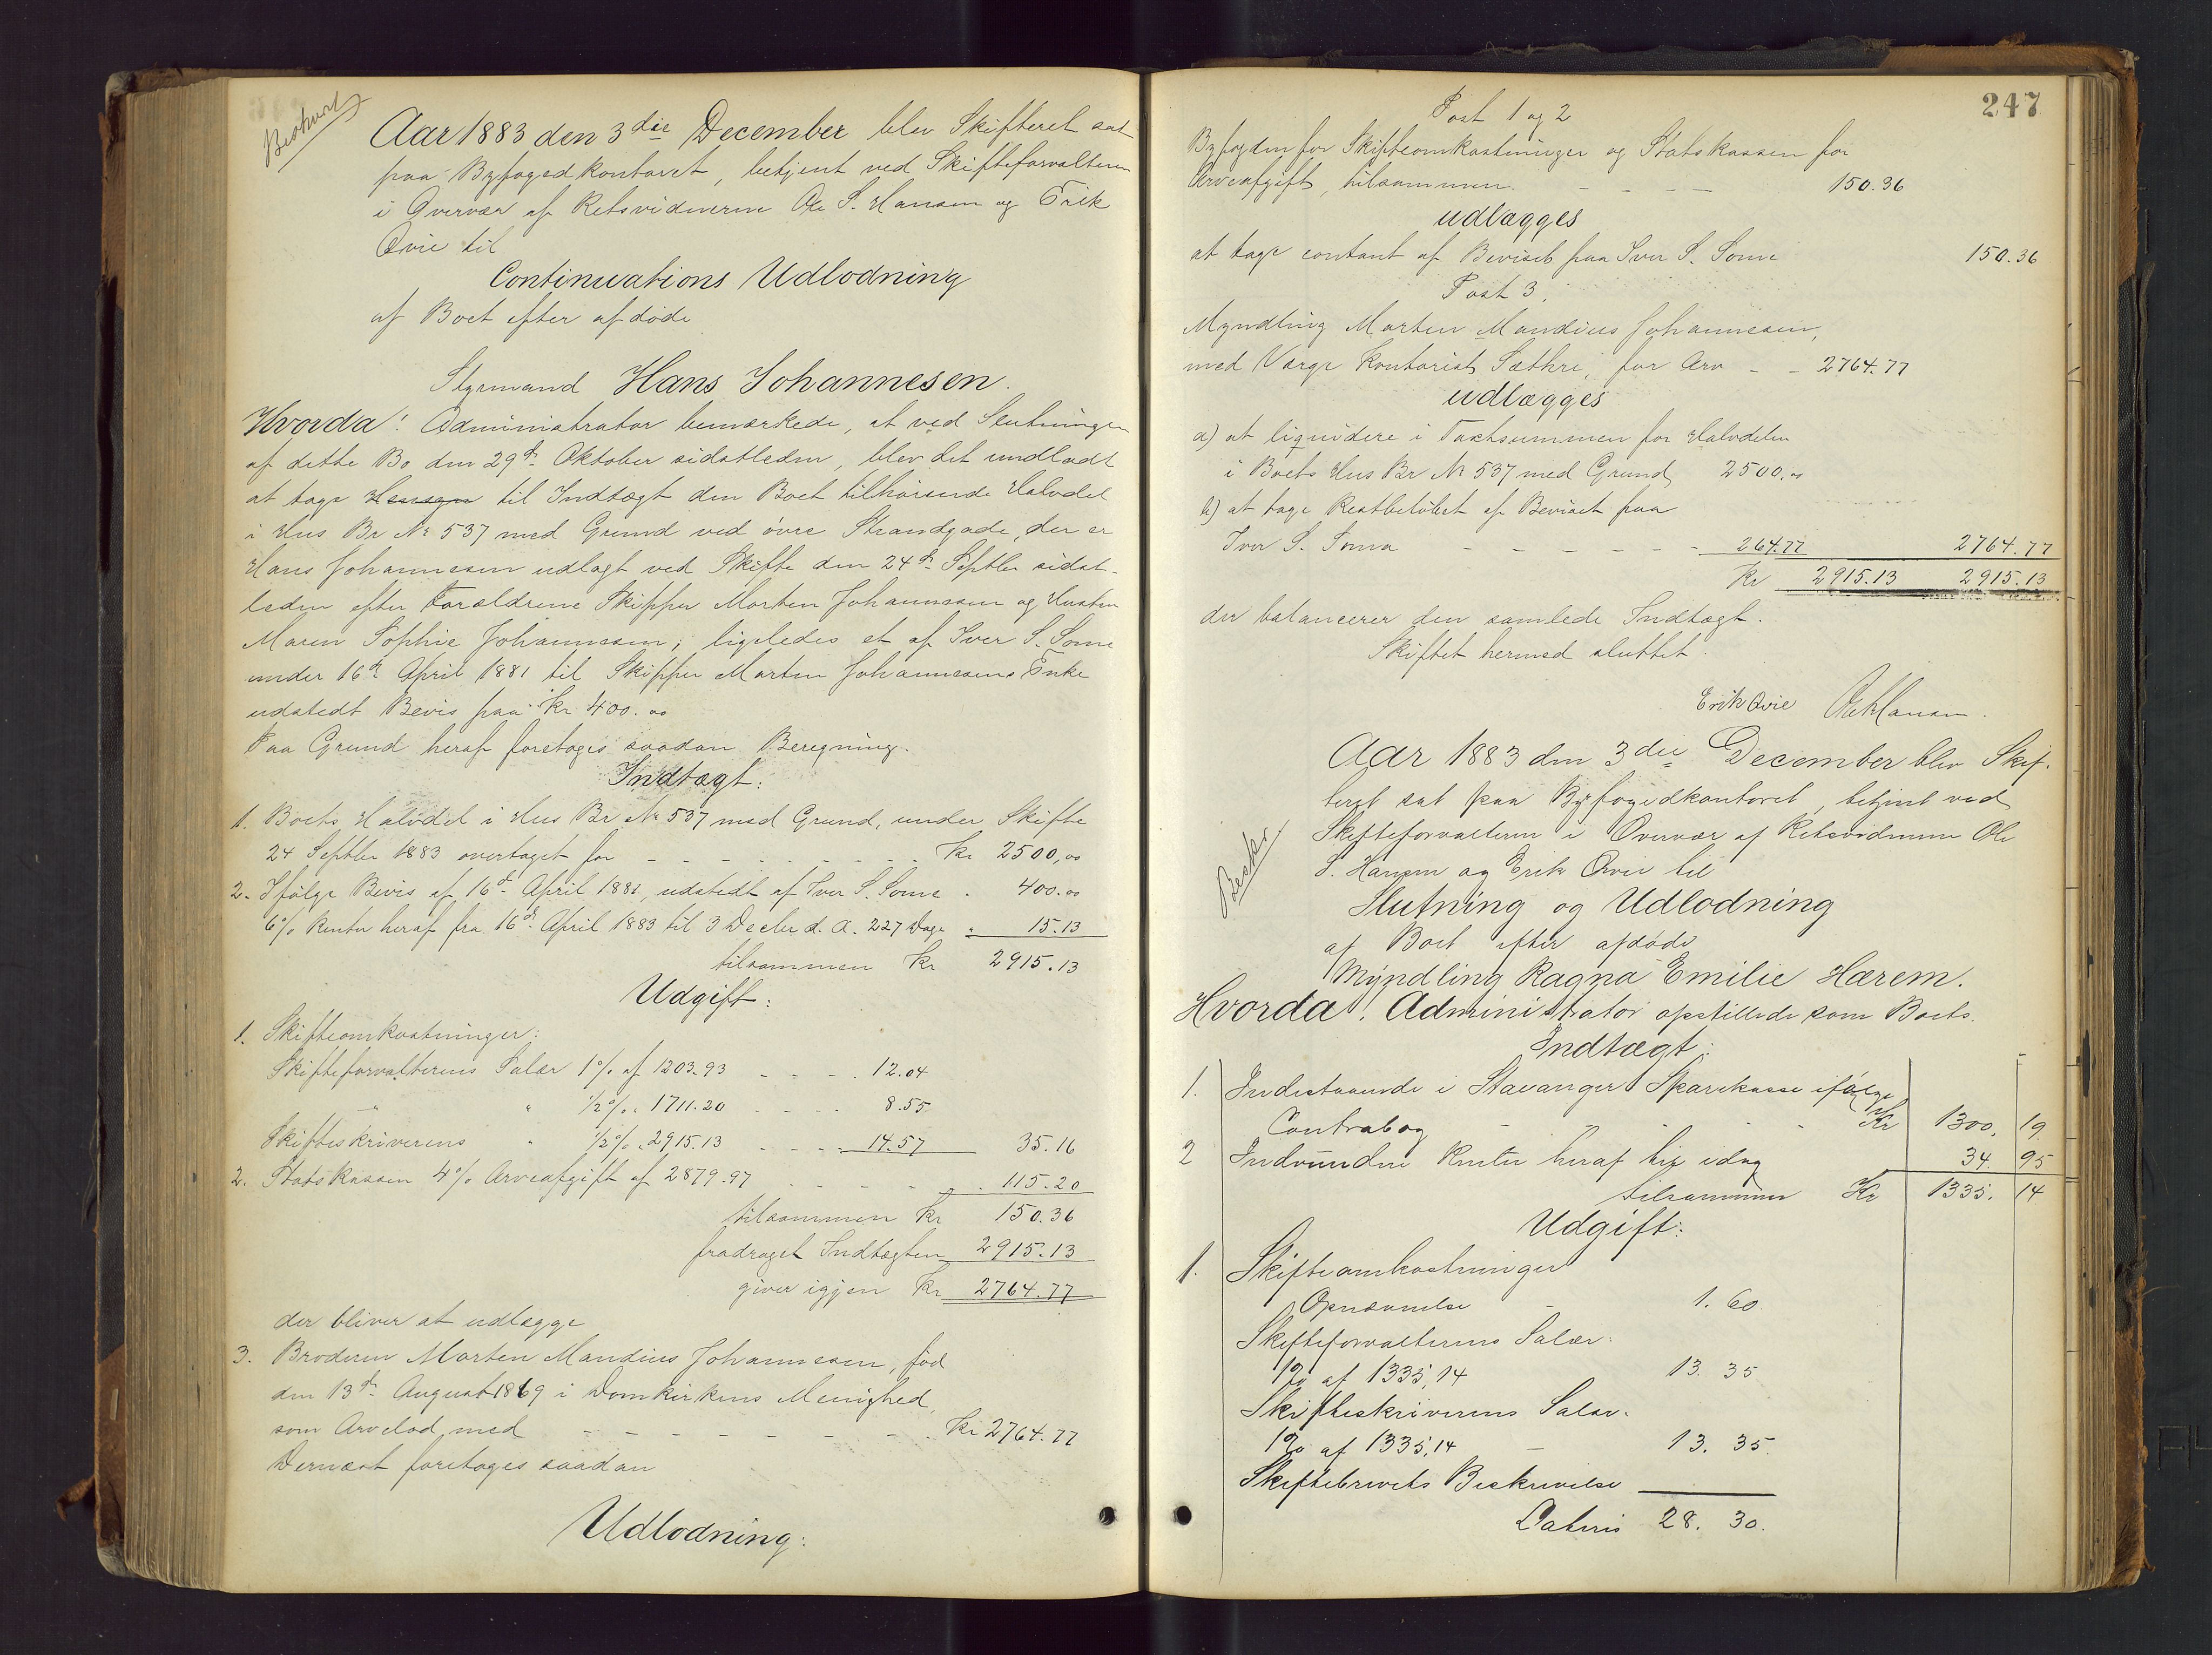 Beskrevet
Aar 1883 den 3die December blev Skifteret sat
paa Byfogedkontoret, betjent ved Skifteforvalteren
i Overvær af Retsvidnerne Ole S. Hansen og Erik
Qvie til
Continuations Udlodning
af Boet efter afdöde
Styrmand Hans Johannesen.
Hvorda: Administrator bemærkede, at ved Slutningen
af dette Bo den 29de Oktober sidstleden, blev det undladt
at tage Hensyn til Indtægt den Boet tilhörende Halvdel
i Hus Br № 537 med Grund ved övre Strandgade, der er
Hans Johannesen udlagt ved Skifte den 24de Septbr sidst-
leden efter Forældrene Skipper Morten Johannesen og Hustru
Maren Sophie Johannesen; ligeledes et af Iver S. Some
under 16de April 1881 til Skipper Morten Johannesens Enke
udstedt Bevis paa Kr 400.00
Paa Grund heraf foretages saadan Beregning.
Indtægt:
1. Boets Halvdel i Hus Br № 537 med Grund, under Skifte
24 Septbr 1883 overtaget for - - - - - - - Kr 2500,00
2. Ifölge Bevis af 16de April 1881, udstedt af Iver S. Some - 400.00
6% Renter heraf fra 16de April 1883 til 3 Decbr d. A. 227 Dage " 15.13
tilsammen Kr 2915.13
Udgift:
1. Skifteomkostninger:
Skifteforvalterens Salær 1% af 1203.93 - - - - 12.04
" " ½% " 1711.20 - - - - 8.55
Skifteskriverens " ½% " 2915.13 - - - - 14.57 35.16
2. Statskassen 4% Arveafgift af 2879.97 - - - - - 115.20
tilsammen Kr 150.36
fradraget Indtægten 2915.13
giver igjen Kr 2764.77
der bliver at udlægge
3. Broderen Morten Mandius Johannesen, föd
den 13de August 1869 i Domkirkens Menighed,
som Arvelod med - - - - - - - - Kr 2764.77
Dernæst foretages saadan
Udlodning:
247
Post 1 og 2
Byfogden for Skifteomkostninger og Statskassen for
Arveafgift, tilsammen - - - - 150.36
udlægges
at tage contant af Beviset paa Iver S. Some 150.36
Post 3.
Myndling Morten Mandius Johannesen,
med Værge Kontorist Sæthre, for Arv - - 2764.77
udlægges
a) at liquidere i Taxtsummen for Halvdelen
i Boets Hus Br № 537 med Grund 2500.00
b) at tage Restbelöbet af Beviset paa
Iver S. Soma - - - - - - 264.77 2764.77
Kr 2915.13 2915.13
der balancerer den samlede Indtægt.
Skiftet hermed sluttet.
Erik Qvie Ole Hansen.
Aar 1883 den 3die December blev Skif-
teret sat paa Byfogedkontoret, betjent ved
Skifteforvalteren i Overvær af Retsvidnerne Ole
S. Hansen og Erik Qvie til
Beskr.
Slutning og Udlodning
af Boet efter afdöde
Myndling Ragna Emilie Hærem.
Hvorda: Administrator opstillede som Boets
Indtægt:
1. Indestaaende i Stavanger Sparekasse ifölge
Contrabog - - - - - Kr 1300. 19
2 Indvundne Renter heraf til idag 34. 95
tilsammen Kr 1335. 14
Udgift:
1. Skifteomkostninger
Opnævnelse - 1. 60.
Skifteforvalterens Salær:
1% af 1335,14 13. 35
Skifteskriverens Salær.
1% af 1335,14 - 13. 35.
Skiftebrevets Beskrivelse
Lateris 28. 30.